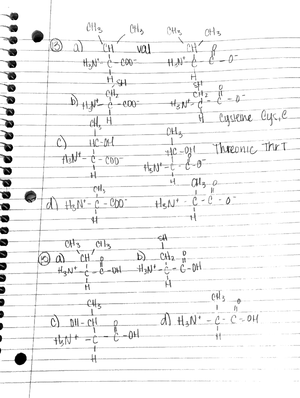 CH₃ CH₃ CH₃ CH₃
a) CH val CH O
H₃N⁺ - C - COO⁻ H₃N⁺ - C - C - O⁻
H H
SH SH
CH₂ CH₂ O
b) H₃N⁺ - C - COO⁻ H₃N⁺ - C - C - O⁻
H H
Cysteine Cys, C
CH₃ CH₃
c) HC-OH HC-OH O Threonic Thr T
H₃N⁺ - C - COO⁻ H₃N⁺ - C - C - O⁻
H H
CH₃ CH₃ O
d) H₃N⁺ - C - COO⁻ H₃N⁺ - C - C - O⁻
H H
CH₃ CH₃ SH
a) CH O b) CH₂ O
H₃N⁺ - C - C - OH H₃N⁺ - C - C - OH
H H
CH₃ CH₃ O
c) OH - CH O d) H₃N⁺ - C - C - OH
H₃N⁺ - C - C - OH H
H